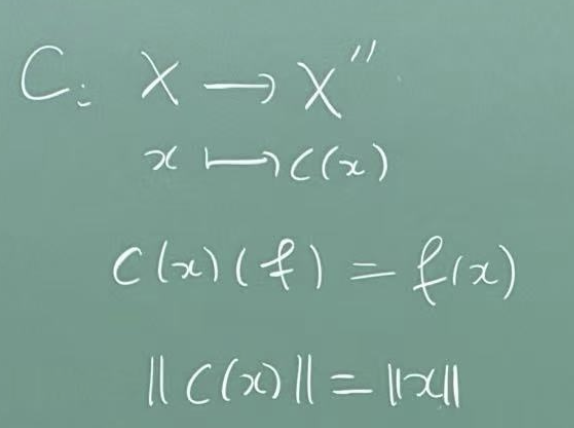 C: X → X''
x ↦ C(x)
C(x)(f) = f(x)
‖C(x)‖ = ‖x‖